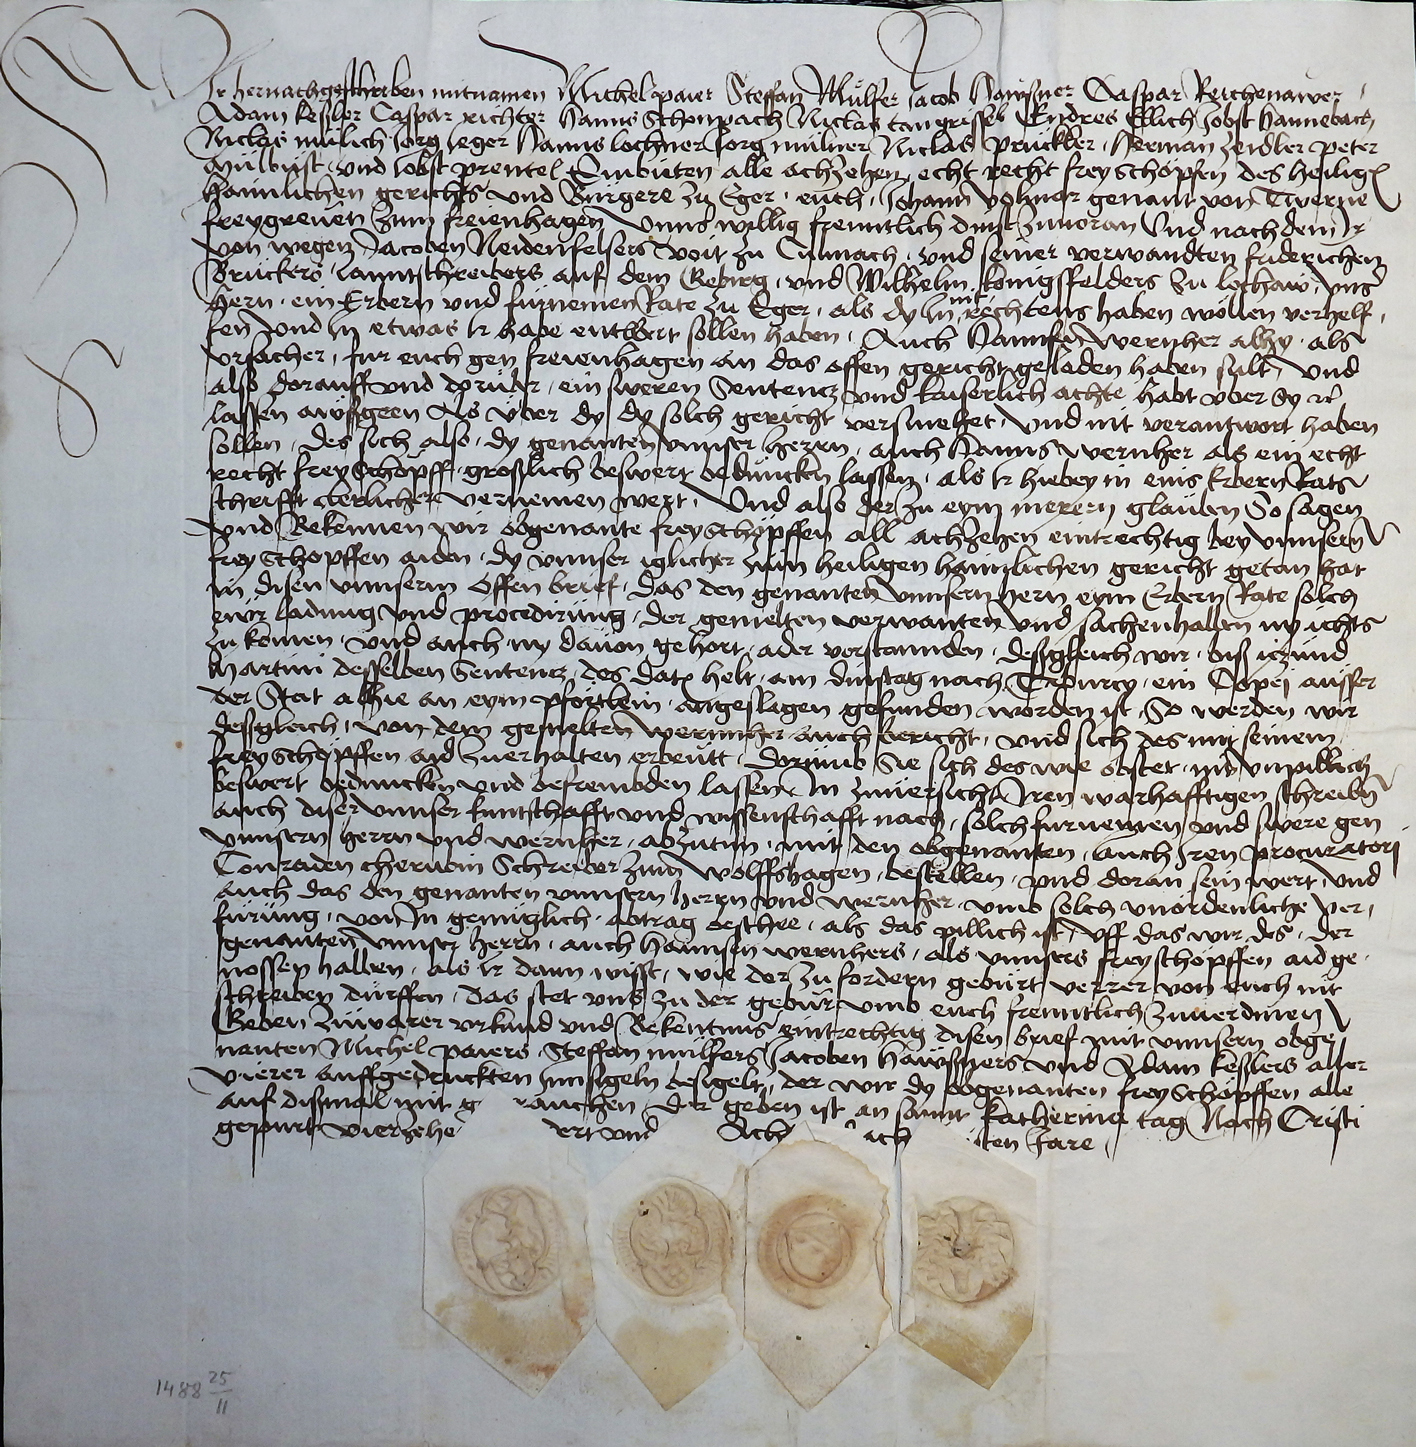 Wir hernachgeschriben mitnamen Michel paier Steffan Mülfer Jacob Hawßner Caspar Reichenawer
Adam kessler Caspar richter Hanns Schonpach Niclas tangrissel Endres Ellich Jobst Hannebach
Niclas mülich Jorg Jeger Hanns lochner Jorg müllner Niclas Prückler Herman zeidler peter
und Jobst prentel Embieten alle achzehen echt recht frey schöpfen des heilig
haimlichen gerichts und Bürgere zu Eger euch Johann volmar genant von Twerne
freygreven zum freienhagen unns willig frenntlich dinst zuuoran Und nach dem Ir
von wegen Jacoben Neidenfelsers voit zu Culmach und seiner verwandten friderichen
Brückers lanntschreibers auf dem Gebirg und Wilhelm königsfelders zu lochaw uns
hern ein Erbern und fürnemen Rate zu Eger als dy In mit rechtens haben wöllen verhelf
fen und In etwas Ir habe entwert sollen haben Auch Hannsen wernher alhy als
ursacher für euch gen freienhagen an das offen gericht geladen haben sult und
also dorauff und ein sweren Sentencz und kaiserlich achte habt uber sy
lassen awßgeen Als uber dy dy solch gericht versmehet und nit verantwort haben
sollen des sich also dy genanten unnser herrn auch Hanns wernher als ein echt
recht frey Schöpff großlich beswert beduncken lassen als Ir hiebey in eins Erbern Rats
schrifft clerlicher vernemen wert Und also der zu eym merern glauben So sagen
und Bekennen wir obgenante frey schöpffen all achzehen eintrechtig bey unnsern
frey Schopffen aiden dy unnser iglicher zum heiligen haimlichen gericht getan hat
in disen unnserm offen brief das den genanten unnsern hern eym Erbern Rate solch
ewr ladung und procedirung der gemelten verwanten und sachenhalben ny ichts
zu komen und auch ny dauon gehort ader verstannden deßgleich wir biß iczund
Martini desselben Sentencz des dat helt am dinstag nach Tiburcy ein Copej ausser
der Stat alhie an eym pförtlein angeslagen gefunden worden ist So werden wir
deßgleich von dem gemelten wernnher auch bericht und sich des mit seinem
frey schöpffen aid zuerhalten erbeutt Dorumb Sie sich des wie obstet nit unpillich
beswert beduncken und befrembden lassen In zuuersicht Iren warhafftigen schreibn
auch diser unnser kuntschafft und wissenschafft nach solch furnemen und swere gen
unnsern herrn und wernher abzutun mit den obgenanten auch Iren procuratorj
Conraden cherubin Schreiber zum Wolffshagen bestellen und doran sein wert und
auch das den genanten unnsern herrn und wernher umb solch unördenliche ver
fürung von In genüglich abtrag beschee als das pillich ist uff das wir des der
genanten unnser herrn auch hannsen wernhers als unnsers frey schöpffen aid ge
nossen halben als Ir dann wist wie der zu fordern gebürt verrer von euch nit
schreiben dürffen das stet uns zu der gebür umb euch frenntlich zuuerdinen
Geben zu warer urkund und Bekentnus eintrechtig disen brief mit unnsern obge
nanten Michel paiers Steffan mülfers Jacoben hawßners und Adam kesslers aller
vierer auffgedruckten Innsigeln besigelt der wir dy obgenanten frey Schöpffen alle
auf dißmal mit g rauchen Der geben ist an sannt katherina tag Nach Cristi
gepurt vierzehe dert und Ach ach ten Jare
1488 25/11